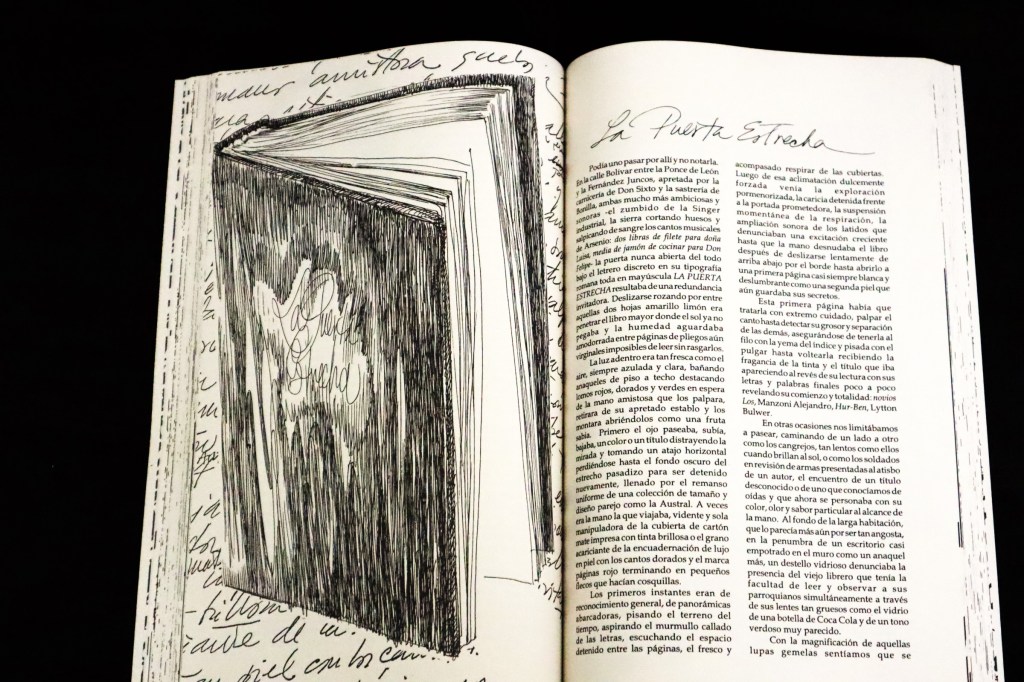 La Puerta Estrecha
Podía uno pasar por allí y no notarla.
En la calle Bolívar entre la Ponce de León
y la Fernández Juncos, apretada por la
carnicería de Don Sixto y la sastrería de
Bonilla, ambas mucho más ambiciosas y
sonoras -el zumbido de la Singer
industrial, la sierra cortando huesos y
salpicando de sangre los cantos musicales
de Arsenio: dos libras de filete para doña
Luisa, media de jamón de cocinar para Don
Felipe- la puerta nunca abierta del todo
bajo el letrero discreto en su tipografía
romana toda en mayúscula LA PUERTA
ESTRECHA resultaba de una redundancia
invitadora. Deslizarse rozando por entre
aquellas dos hojas amarillo limón era
penetrar el libro mayor donde el sol ya no
pegaba y la humedad aguardaba
amodorrada entre páginas de pliegos aún
virginales imposibles de leer sin rasgarlos.
La luz adentro era tan fresca como el
aire, siempre azulada y clara, bañando
anaqueles de piso a techo destacando
lomos rojos, dorados y verdes en espera
de la mano amistosa que los palpara,
retirara de su apretado establo y los
montara abriéndolos como una fruta
sabia. Primero el ojo paseaba, subía,
bajaba, un color o un título distrayendo la
mirada y tomando un atajo horizontal
perdiéndose hasta el fondo oscuro del
estrecho pasadizo para ser detenido
nuevamente, llenado por el remanso
uniforme de una colección de tamaño y
diseño parejo como la Austral. A veces
era la mano la que viajaba, vidente y sola
manipuladora de la cubierta de cartón
mate impresa con tinta brillosa o el grano
acariciante de la encuadernación de lujo
en piel con los cantos dorados y el marca
páginas rojo terminando en pequeños
flecos que hacían cosquillas.
Los primeros instantes eran de
reconocimiento general, de panorámicas
abarcadoras, pisando el terreno del
tiempo, aspirando el murmullo callado
de las letras, escuchando el espacio
detenido entre las páginas, el fresco y
acompasado respirar de las cubiertas.
Luego de esa aclimatación dulcemente
forzada venía la exploración
pormenorizada, la caricia detenida frente
a la portada prometedora, la suspensión
momentánea de la respiración, la
ampliación sonora de los latidos que
denunciaban una excitación creciente
hasta que la mano desnudaba el libro
después de deslizarse lentamente de
arriba abajo por el borde hasta abrirlo a
una primera página casi siempre blanca y
deslumbrante como una segunda piel que
aún guardaba sus secretos.
Esta primera página había que
tratarla con extremo cuidado, palpar el
canto hasta detectar su grosor y separación
de las demás, asegurándose de tenerla al
filo con la yema del índice y pisada con el
pulgar hasta voltearla recibiendo la
fragancia de la tinta y el título que iba
apareciendo al revés de su lectura con sus
letras y palabras finales poco a poco
revelando su comienzo y totalidad: novios
Los, Manzoni Alejandro, Hur-Ben, Lytton
Bulwer.
En otras ocasiones nos limitábamos
a pasear, caminando de un lado a otro
como los cangrejos, tan lentos como ellos
cuando brillan al sol, o como los soldados
en revisión de armas presentadas al atisbo
de un autor, el encuentro de un título
desconocido o de uno que conocíamos de
oídas y que ahora se personaba con su
color, olor y sabor particular al alcance de
la mano. Al fondo de la larga habitación,
que lo parecía más aún por ser tan angosta,
en la penumbra de un escritorio casi
empotrado en el muro como un anaquel
más, un destello vidrioso denunciaba la
presencia del viejo librero que tenía la
facultad de leer y observar a sus
parroquianos simultáneamente a través
de sus lentes tan gruesos como el vidrio
de una botella de Coca Cola y de un tono
verdoso muy parecido.
Con la magnificación de aquellas
lupas gemelas sentíamos que se